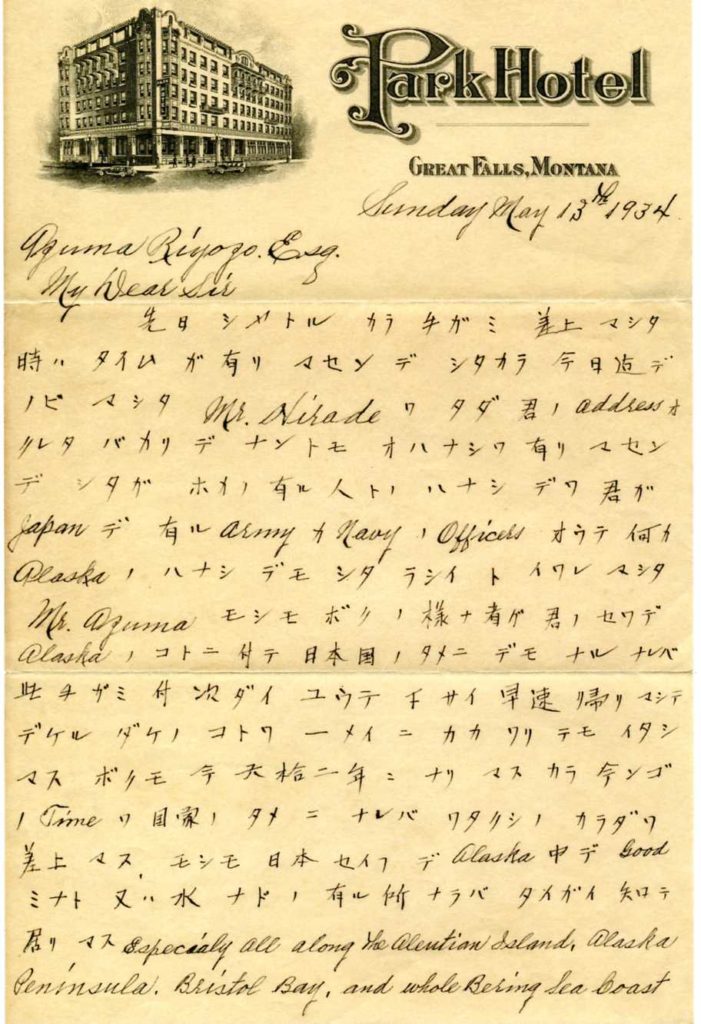 Park Hotel
Great Falls, Montana
Sunday May 13th 1934.
Azuma Riyozo. Esq.
My Dear Sir
先日 シヤトル カラ 手ガミ 差上 マシタ
時ハ タイム ガ 有リ マセン デ シタカラ 今日迠デ
ノビ マシタ Mr. Hirade ワ タダ 君ノ address オ
クレタ バカリ デ ナントモ オハナシワ 有リ マセン
デ シタガ ホカノ 有ル 人トノ ハナシ デワ 君ガ
Japan デ 有ル Army カ Navy ノ Officers オウテ 何カ
Alaska ノ ハナシ デモ シタ ラシイ ト イワレ マシタ
Mr. Azuma モシモ ボクノ 様ナ者ガ 君ノ セワデ
Alaska ノ コトニ 付テ 日本国ノ タメニ デモ ナル ナレバ
此 手ガミ 付 次ダイ ユウテ 下サイ 早速 帰リ マシテ
デケル ダケノ コトワ 一メイ ニ カカ ワリ テモ イタシ
マス ボクモ 今 六拾二年 ニ ナリ マス カラ 今ンゴ
ノ Time ワ 国家ノ タメ ニ ナレバ ワタクシノ カラダワ
差上 マス. モシモ 日本 セイフ デ Alaska 中デ Good
ミナト 又ハ 水 ナドノ 有ル 所 ナラバ タイガイ 知ロテ
居リ マス Especialy all along the Aleutian Island, Alaska
Peninsula. Bristol Bay, and whole Bering Sea Coast